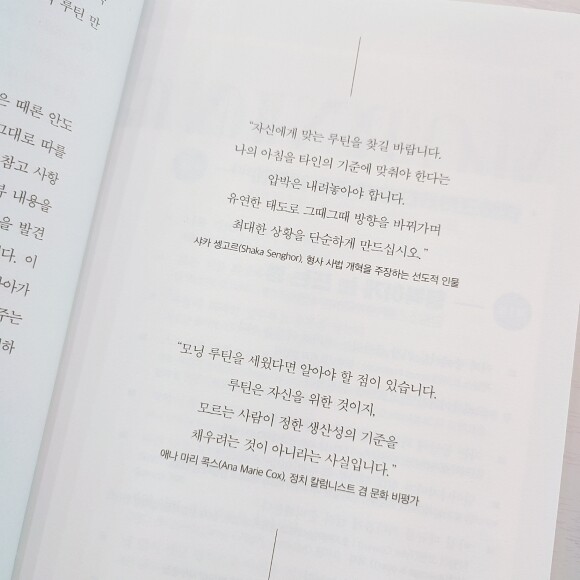 루틴 만
은 때론 안도
그대로 따를
참고 사항
내용을
을 발견
다. 이
아가
주는
하
"자신에게 맞는 루틴을 찾길 바랍니다.
나의 아침을 타인의 기준에 맞춰야 한다는
압박은 내려놓아야 합니다.
유연한 태도로 그때그때 방향을 바꿔가며
최대한 상황을 단순하게 만드십시오."
샤카 셍고르(Shaka Senghor), 형사 사법 개혁을 주장하는 선도적 인물
"모닝 루틴을 세웠다면 알아야 할 점이 있습니다.
루틴은 자신을 위한 것이지,
모르는 사람이 정한 생산성의 기준을
채우려는 것이 아니라는 사실입니다."
애나 마리 콕스(Ana Marie Cox), 정치 칼럼니스트 겸 문화 비평가